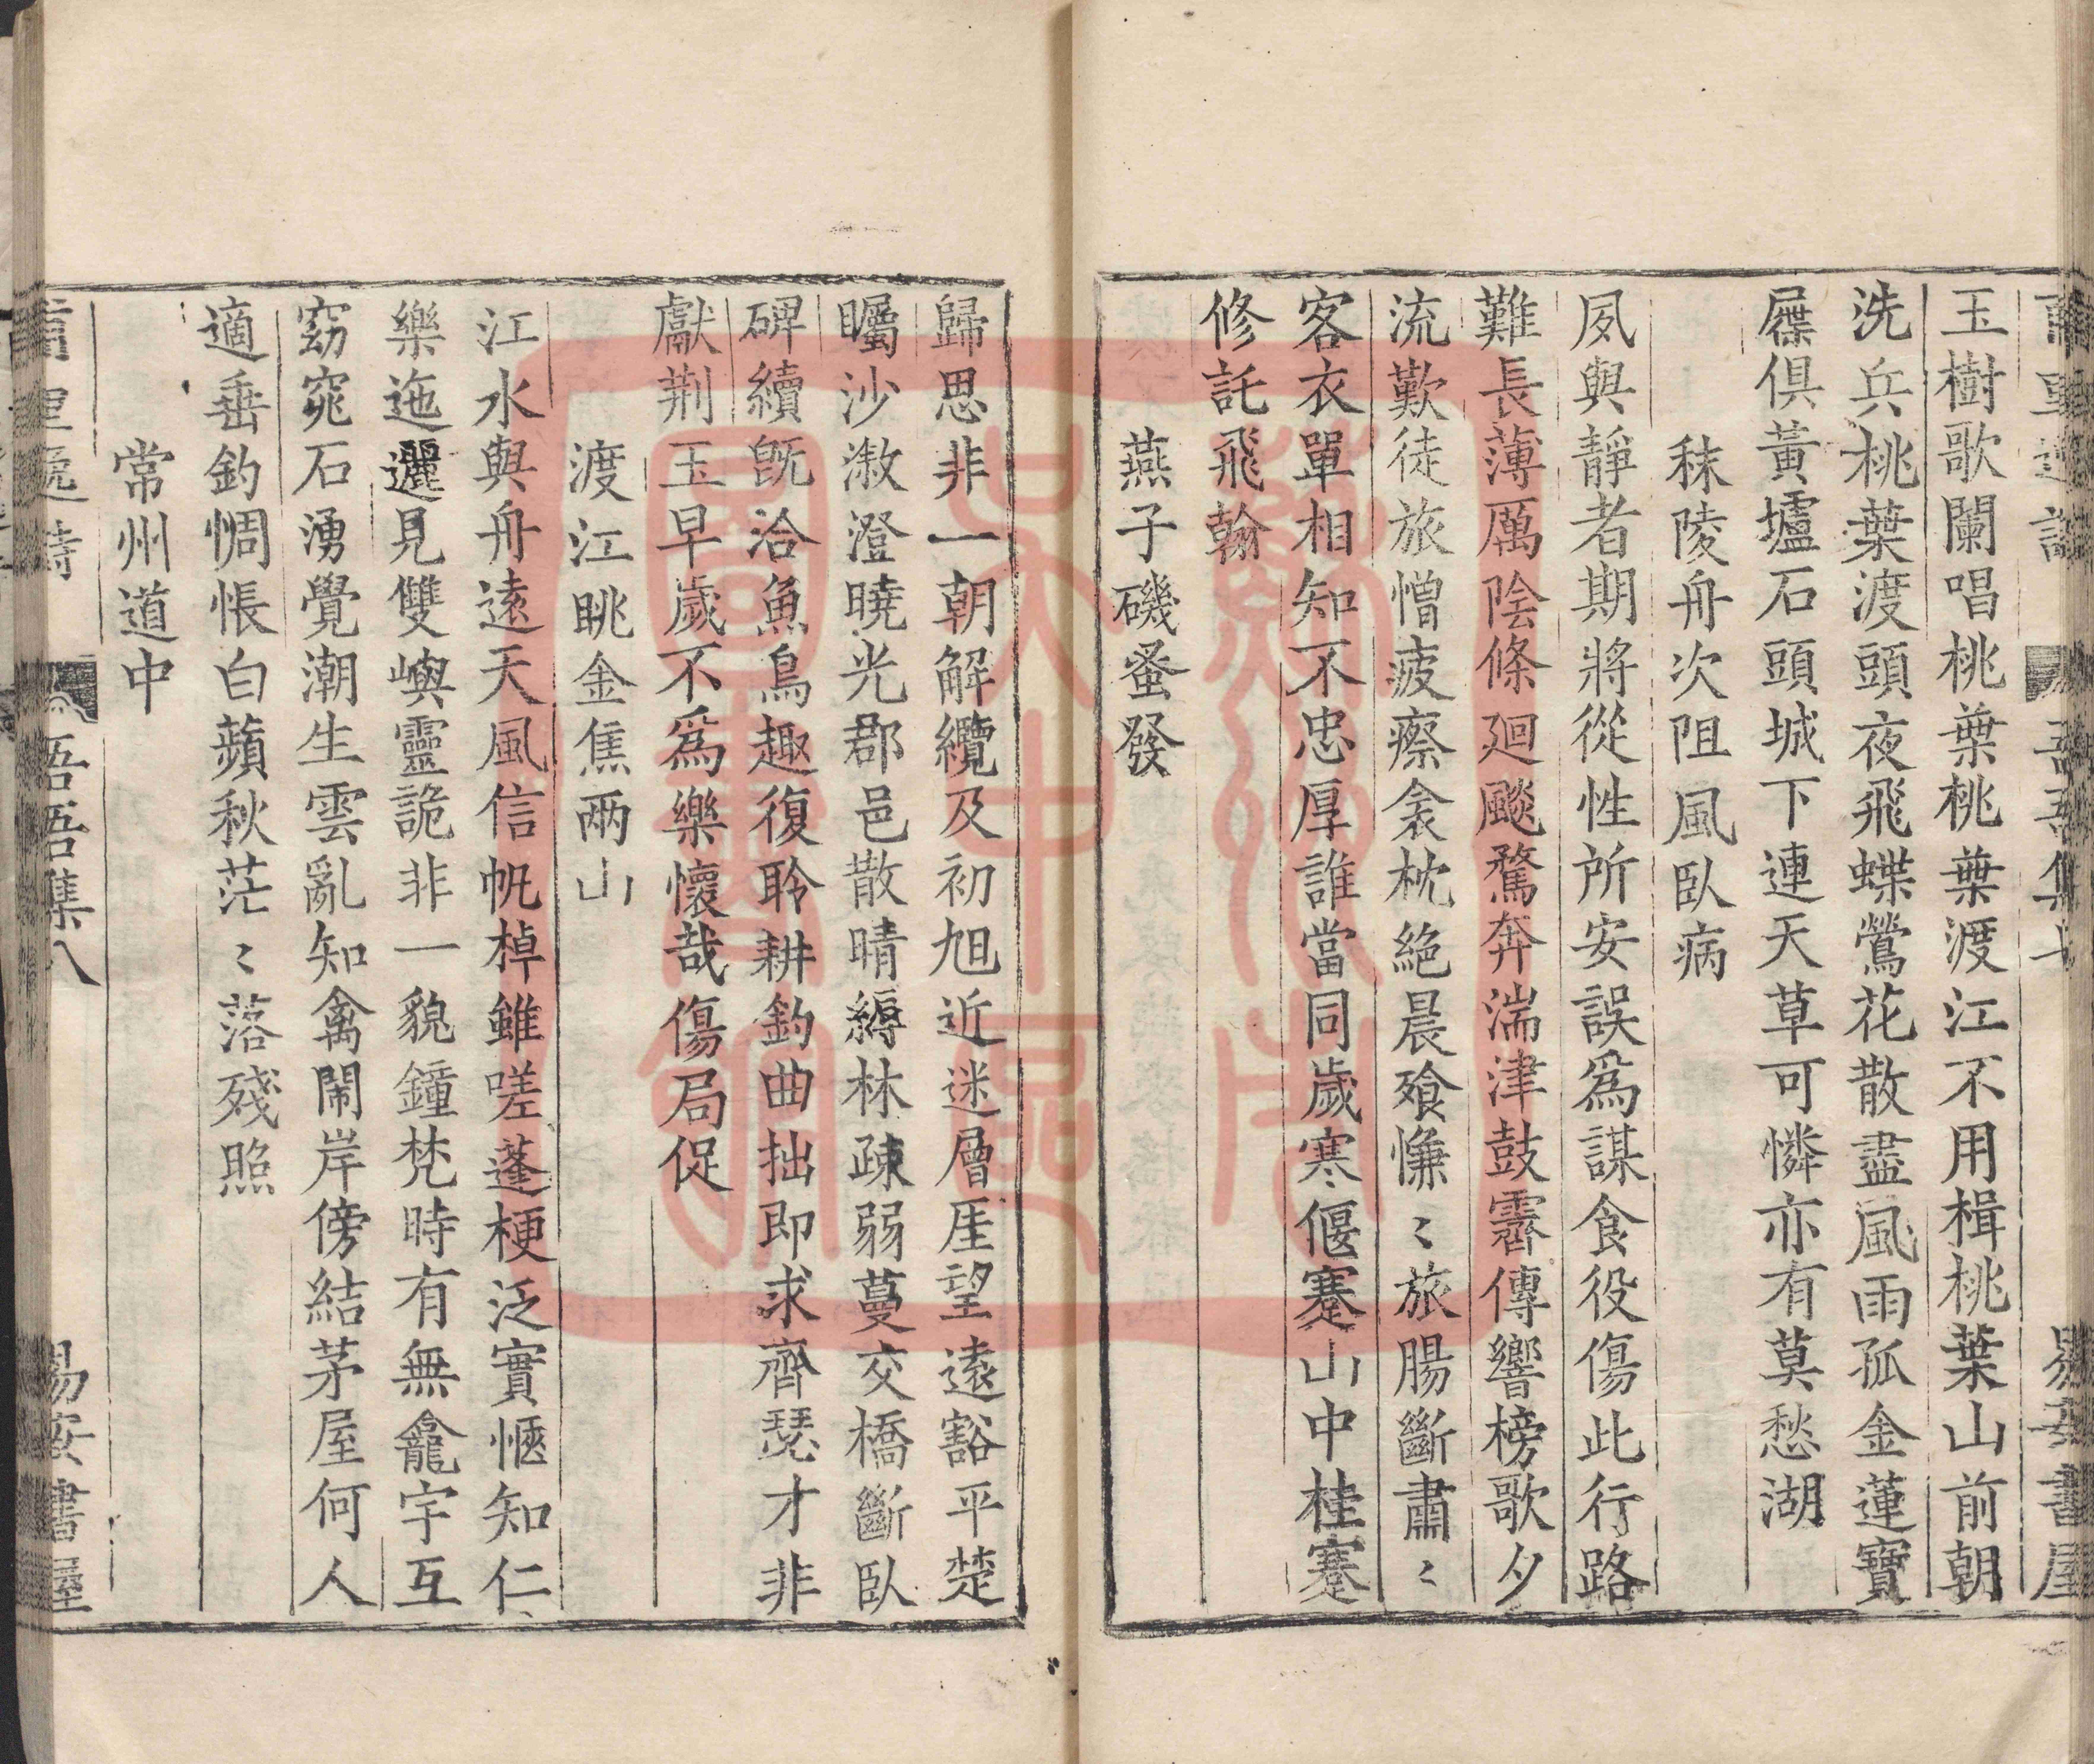 玉樹歌闌唱桃葉桃葉渡江不用楫桃葉山前朝
洗兵桃葉渡頭夜飛蝶鶯花散盡風雨孤金蓮寶
屧俱黃壚石頭城下連天草可憐亦有莫愁湖
秣陵舟次阻風臥病
夙與靜者期將從性所安誤爲謀食役傷此行路
難長薄厲陰條迴飈騖奔湍津鼓霽傳響榜歌夕
流歎徒旅憎疲瘵衾枕絕晨飱慊〻旅腸斷肅〻
客衣單相知不忠厚誰當同歲寒偃蹇山中桂蹇
修託飛翰
燕子磯蚤發
歸思非一朝解纜及初旭近迷層厓望遠豁平楚
矚沙漵澄曉光郡邑散晴縟林疎弱蔓交橋斷臥
碑續旣洽魚鳥趣復聆耕釣曲拙即求齊瑟才非
獻荆玉早歲不爲樂懷哉傷局促
渡江眺金焦兩山
江水與舟遠天風信帆棹雖嗟蓬梗泛實愜知仁
樂迤邐見雙嶼靈詭非一貌鐘梵時有無龕宇互
窈窕石湧覺潮生雲亂知禽鬧岸傍結茅屋何人
適垂釣惆悵白蘋秋茫〻落殘照
常州道中
吾吾集八
易安書屋